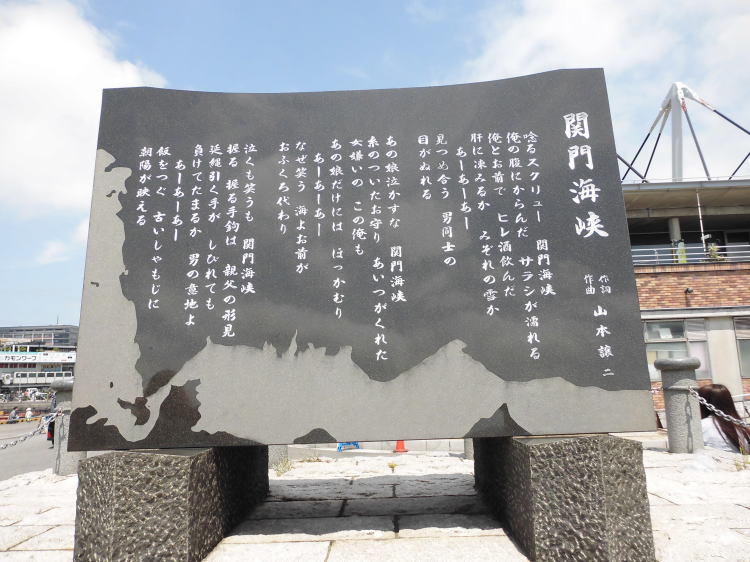 関門海峡
作詞
作曲
山本譲二
唸るスクリュー 関門海峡
俺の腹にからんだ サラシが濡れる
俺とお前で ヒレ酒飲んだ
肝に凍みるか みぞれの雪か
あーあーあー
見つめ合う 男同士の
目がぬれる
あの娘泣かすな 関門海峡
糸のついたお守り あいつがくれた
女嫌いの この俺も
あの娘だけには ほっかむり
あーあーあー
なぜ笑う 海よお前が
おふくろ代わり
泣くも笑うも 関門海峡
握る 握る手鈎は 親父の形見
延縄引く手が しびれても
負けてたまるか 男の意地よ
あーあーあー
飯をつぐ 古いしゃもじに
朝陽が映える
カモンワーフ